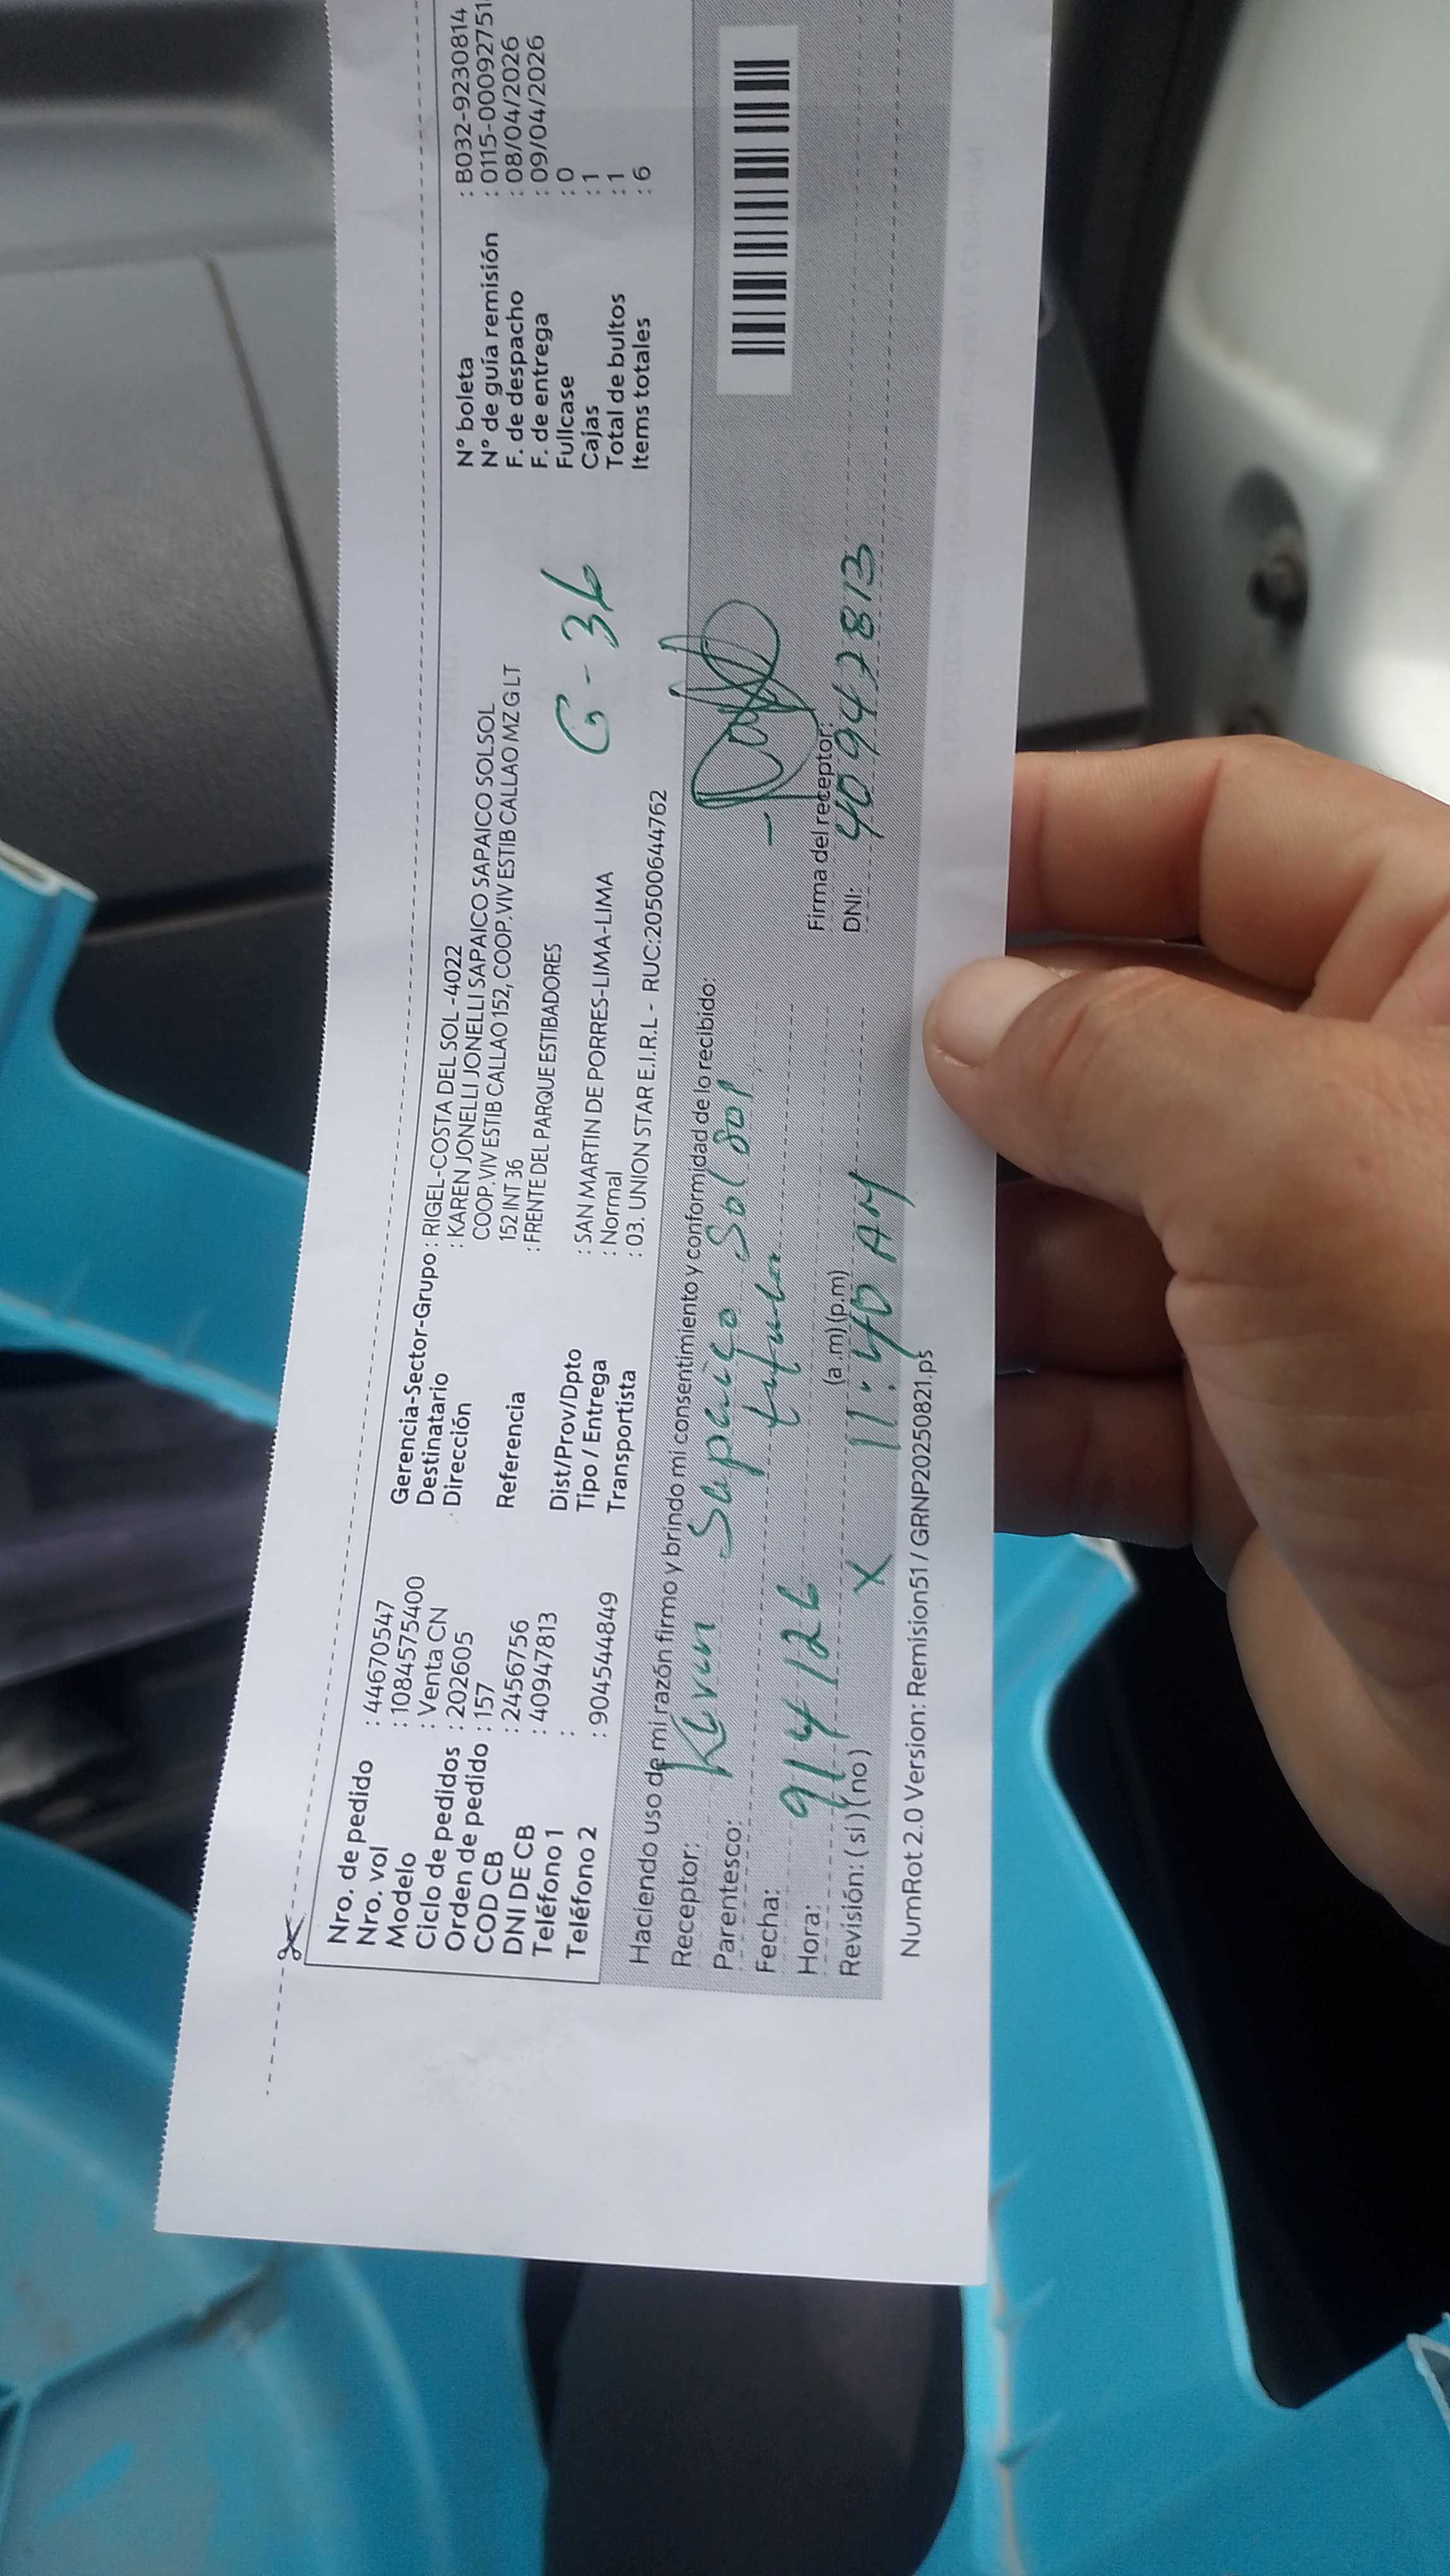 Nro. de pedido : 44670547
Nro. vol : 1084575400
Modelo : Venta CN
Ciclo de pedidos : 202605
Orden de pedido : 157
COD CB : 2456756
DNI DE CB : 40947813
Teléfono 1 :
Teléfono 2 : 904544849
Gerencia-Sector-Grupo : RIGEL-COSTA DEL SOL -4022
Destinatario : KAREN JONELLI JONELLI SAPAICO SAPAICO SOLSOL
Dirección COOP.VIV ESTIB CALLAO 152, COOP.VIV ESTIB CALLAO MZ G LT
152 INT 36
Referencia : FRENTE DEL PARQUE ESTIBADORES
Dist/Prov/Dpto : SAN MARTIN DE PORRES-LIMA-LIMA
Tipo / Entrega : Normal
Transportista : 03. UNION STAR E.I.R.L - RUC:20500644762
G - 36
N° boleta : B032-9230814
N° de guía remisión : 0115-00092751
F. de despacho : 08/04/2026
F. de entrega : 09/04/2026
Fullcase : 0
Cajas : 1
Total de bultos : 1
Items totales : 6
Haciendo uso de mi razón firmo y brindo mi consentimiento y conformidad de lo recibido:
Receptor: Sapaico Solsol
Parentesco:
Fecha: 9/4/26
Hora: (a.m) (p.m) 11:40 AM
Revisión: ( si ) ( no ) X
Firma del receptor:
DNI: 40947813
NumRot 2.0 Version: Remision51 / GRNP20250821.ps